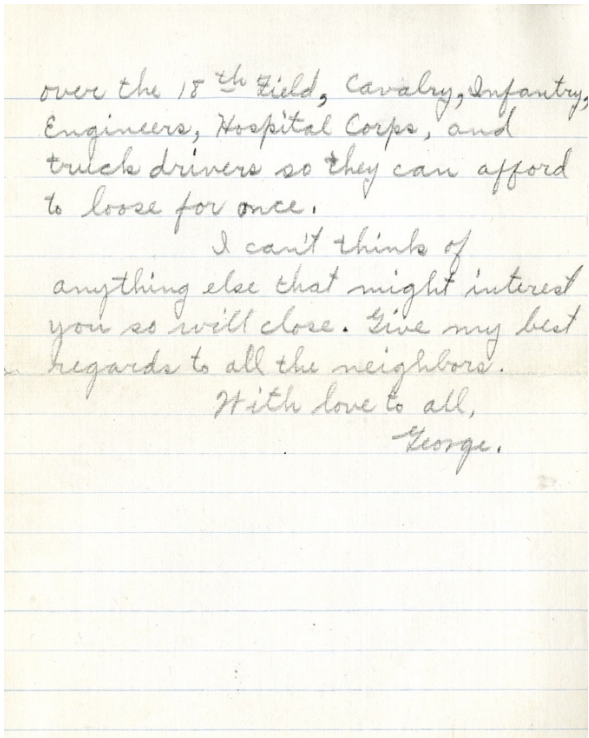 over the 18th Field, Cavalry, Infantry,
Engineers, Hospital Corps, and
truck drivers so they can afford
to loose for once.
I can't think of
anything else that might interest
you so will close. Give my best
regards to all the neighbors.
With love to all,
George.